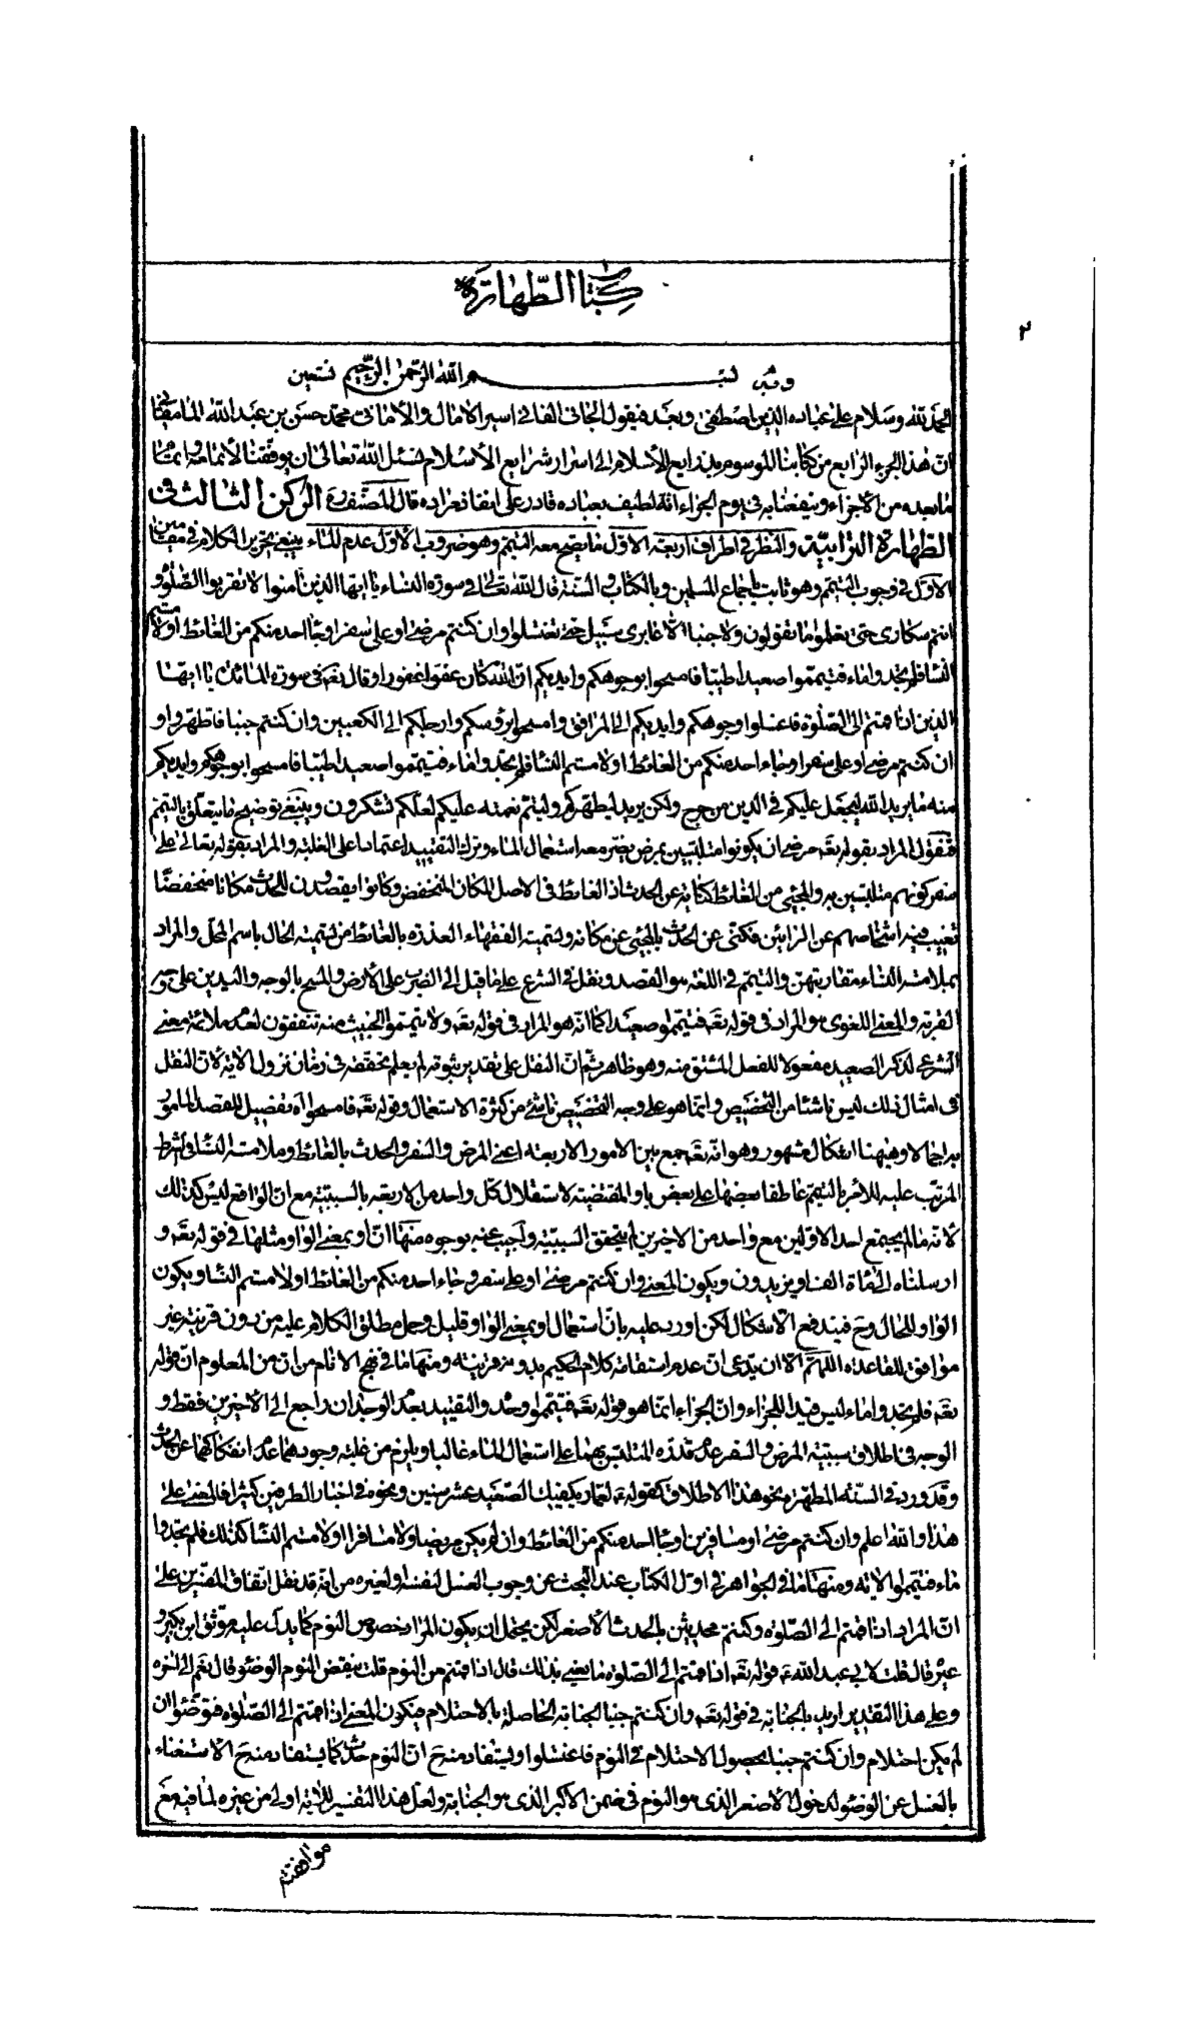 كتاب الطهارة
٢
بسم الله الرحمن الرحيم وبه نستعين
الحمد لله وسلام على عباده الذين اصطفى وبعد فيقول الجاني الفاني اسير الامال والأماني محمد حسن بن عبد الله المامقاني
ان هذا الجزء الرابع من كتابنا الموسوم بذرايع الأسلام الى اسرار شرايع الأسلام نسئل الله تعالى ان يوفقنا لأتمامه واتمام
ما بعده من الأجزاء وينفعنا به في يوم الجزاء انه لطيف بعباده قادر على انفاذ مراده قال المصنف ره الركن الثالث في
الطهارة الترابية والنظر في اطراف اربعة الاول ما يصح معه التيمم وهو ضروب الأول عدم الماء ينبغي تحرير الكلام في مقامين
الاول في وجوب التيمم وهو ثابت باجماع المسلمين وبالكتاب والسنة قال الله تعالى في سورة النساء يا ايها الذين امنوا لا تقربوا الصلوة و
انتم سكارى حتى تعلموا ما تقولون ولا جنبا الا عابرى سبيل حتى تغتسلوا وان كنتم مرضى او على سفر او جاء احد منكم من الغائط او لامستم
النساء فلم تجدوا ماء فتيمموا صعيدا طيبا فامسحوا بوجوهكم وايديكم ان الله كان عفوا غفورا وقال تعه في سورة المائدة يا ايها
الذين اذا قمتم الى الصلوة فاغسلوا وجوهكم وايديكم الى المرافق وامسحوا برؤسكم وارجلكم الى الكعبين وان كنتم جنبا فاطهروا و
ان كنتم مرضى او على سفر او جاء احد منكم من الغائط او لامستم النساء فلم تجدوا ماء فتيمموا صعيدا طيبا فامسحوا بوجوهكم وايديكم
منه ما يريد الله ليجعل عليكم في الدين من حرج ولكن يريد ليطهركم وليتم نعمته عليكم لعلكم تشكرون وينبغي توضيح ما يتعلق بالتيمم
فنقول المراد بقوله تعه مرضى ان يكونوا متلبسين بمرض يضر معه استعمال الماء وترك التقييد اعتمادا على الغلبة والمراد بقوله تعالى على
سفر كونهم متلبسين به والمجيئ من الغائط كناية عن الحدث اذ الغائط في الاصل المكان المنخفض وكانوا يقصدون للحدث مكانا منخفضا
تغيب فيه اشخاصهم عن الرائين فكنى عن الحدث بالمجيئ عن مكانه وتسمية الفقهاء العذرة بالغائط من تسمية الحال باسم المحل والمراد
بملامسة النساء مقاربتهن والتيمم في اللغة هو القصد ونقل في الشرع على ما قيل الى الضرب على الأرض والمسح بالوجه واليدين على وجه
القربة والمعنى اللغوى هو المراد في قوله تعه فتيمموا صعيدا كما انه هو المراد في قوله تعه ولا تيمموا الخبيث منه تنفقون لعدم ملائمة معنى
الشرعى لذكر الصعيد مفعولا للفعل المشتق منه وهو ظاهر ثم ان النقل على تقدير ثبوته لم يعلم تحققه في زمان نزول الاية لان النقل
في امثال ذلك ليس ناشئا من التخصيص وانما هو على وجه التخصص ناشئ من كثرة الاستعمال وقوله تعه فامسحوا اه تفصيل للقصد المامور
به اجمالا وهيهنا اشكال مشهور وهو انه تعه جمع بين الامور الاربعة اعنى المرض والسفر والحدث بالغائط وملامسة النساء في الشرط
المرتب عليه للامر بالتيمم عاطفا بعضها على بعض باو المقتضية لاستقلال كل واحد من الاربعة بالسببية مع ان الواقع ليس كذلك
لأنه ما لم يجتمع احد الاولين مع واحد من الاخيرين لم يتحقق السببية واجيب عنه بوجوه منها ان او بمعنى الواو مثلها في قوله تعه و
ارسلناه الى مائة الف او يزيدون ويكون المعنى وان كنتم مرضى او على سفر وجاء احد منكم من الغائط او لامستم النساء ويكون
الواو للحال وح فيندفع الاشكال لكن اورد عليه بان استعمال او بمعنى الواو قليل وحمل مطلق الكلام عليه من دون قرينة غير
موافق للقاعدة اللهم الا ان يدعى ان عدم استقامة كلام الحكيم بدونه قرينة ومنها ما في نهج الانام من ان من المعلوم ان قوله
تعه فلم تجدوا ماء ليس قيدا للجزاء وان الجزاء انما هو قوله تعه فتيمموا وحده والتقييد بعدم الوجدان راجع الى الأخيرين فقط و
الوجه في اطلاق سببية المرض والسفر عدم قدرة المتلبس بهما على استعمال الماء غالبا ويلزم من غلبة وجودهما عدم انفكاكهما عن الحدث
وقد ورد في السنة المطهرة نحو هذا الاطلاق كقوله ع لعمار يكفيك الصعيد عشر سنين ونحوه في اخبار الطرفين كثير فالمعنى على
هذا والله اعلم وان كنتم مرضى او مسافرين او جاء احد منكم من الغائط وان لم يكن مريضا ولا مسافرا او لامستم النساء كذلك فلم تجدوا
ماء فتيمموا الاية ومنها ما في الجواهر في اول الكتاب عند البحث عن وجوب الغسل لنفسه او لغيره من انه قد نقل اتفاق المفسرين على
ان المراد اذا قمتم الى الصلوة وكنتم محدثين بالحدث الأصغر لكن يحتمل ان يكون المراد خصوص النوم كما يدل عليه موثق ابن بكير و
غيره قال قلت لابي عبد الله ع قوله تعه اذا قمتم الى الصلوة ما يعنى بذلك قال اذا قمتم من النوم قلت ينقض النوم الوضوء قال نعم الى اخره
وعلى هذا التقدير اريد بالجنابة في قوله تعه وان كنتم جنبا الجنابة الحاصلة بالاحتلام فيكون المعنى اذا قمتم الى الصلوة فتوضئوا ان
لم يكن احتلام وان كنتم جنبا بحصول الاحتلام في النوم فاغتسلوا ويستفاد منه ح ان النوم حدث كما يستفاد منه ح الاستغناء
بالغسل عن الوضوء لدخول الأصغر الذى هو النوم في ضمن الاكبر الذى هو الجنابة ولعل هذا التفسير للاية اولى من غيره لما فيه مع
موافقته